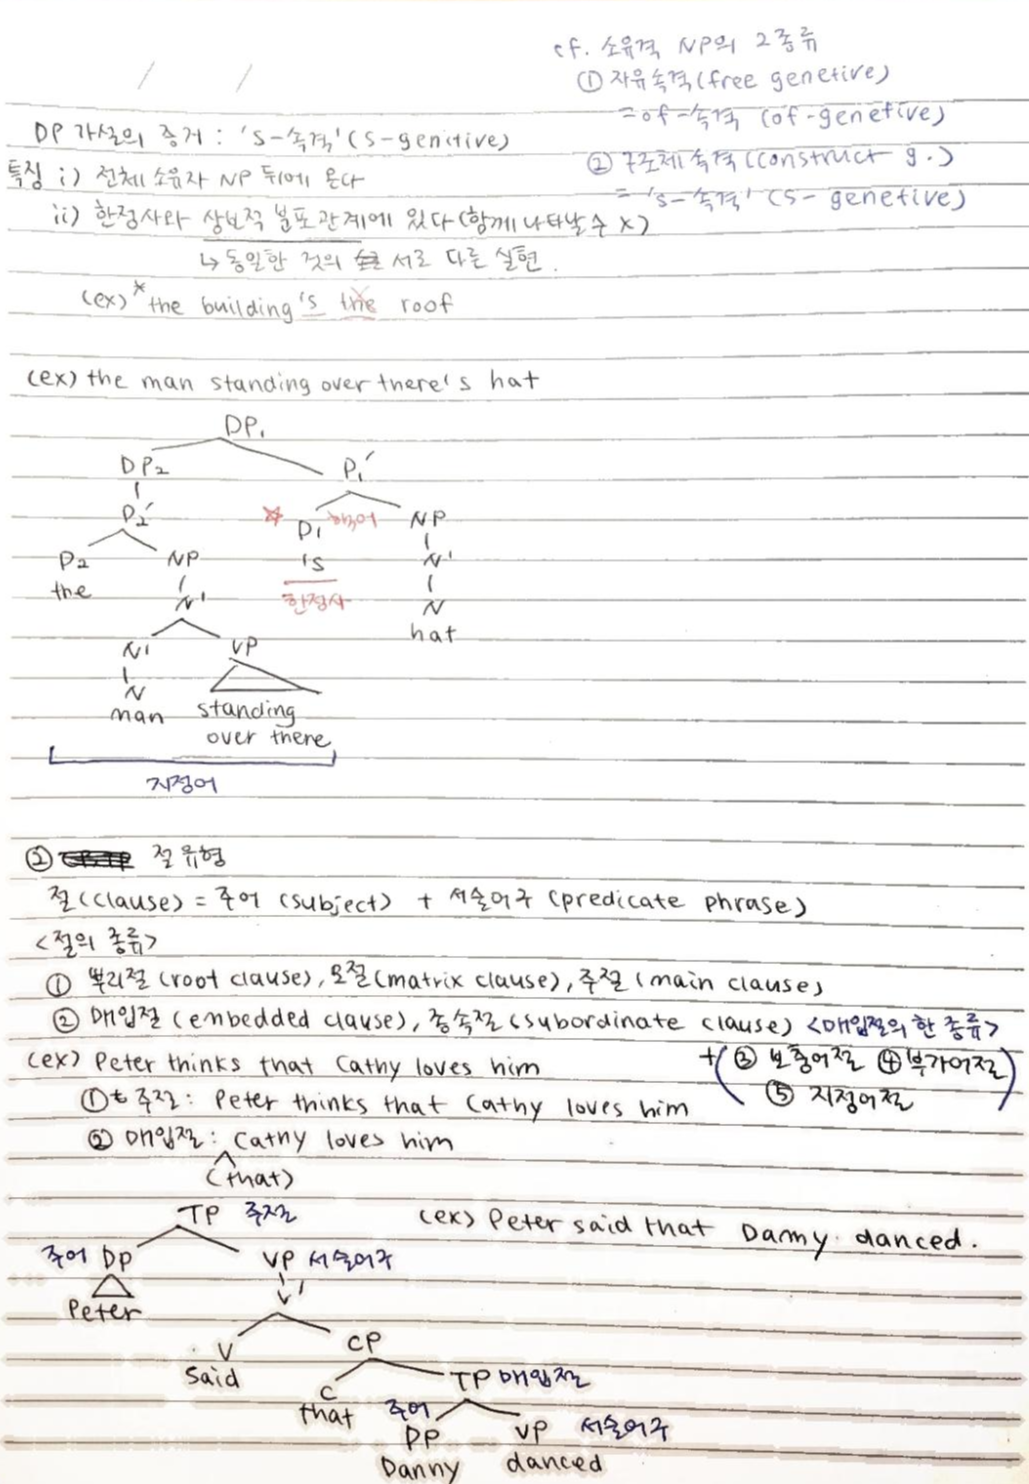 cf. 소유격 NP의 2종류
① 자유속격(free genetive)
= of-속격 (of-genetive)
② 구조체 속격 (construct g.)
= 's-속격' (s-genetive)
DP 가설의 증거 : 's-속격' (s-genitive)
특징 i) 전체 소유자 NP 뒤에 온다
ii) 한정사와 상보적 분포 관계에 있다 (함께 나타날 수 X)
↳ 동일한 것의 서로 다른 실현.
(ex) *the building's the roof
(ex) the man standing over there's hat
DP₁
DP₂ D₁′
D₂′ ☆ D₁ 핵어 NP
D₂ NP 's N′
the N′ 한정사 N
N′ VP hat
N
man standing
over there
지정어
② 절 유형
절(clause) = 주어 (subject) + 서술어구 (predicate phrase)
<절의 종류>
① 뿌리절 (root clause), 모절(matrix clause), 주절 (main clause)
② 매입절 (embedded clause), 종속절 (subordinate clause) <매입절의 한 종류>
+(③ 보충어절 ④ 부가어절
⑤ 지정어절)
(ex) Peter thinks that Cathy loves him
① 주절: Peter thinks that Cathy loves him
② 매입절: Cathy loves him
(that)
(ex) Peter said that Danny danced.
TP 주절
주어 DP VP 서술어구
Peter V′
V CP
said C TP 매입절
that 주어 DP VP 서술어구
Danny danced